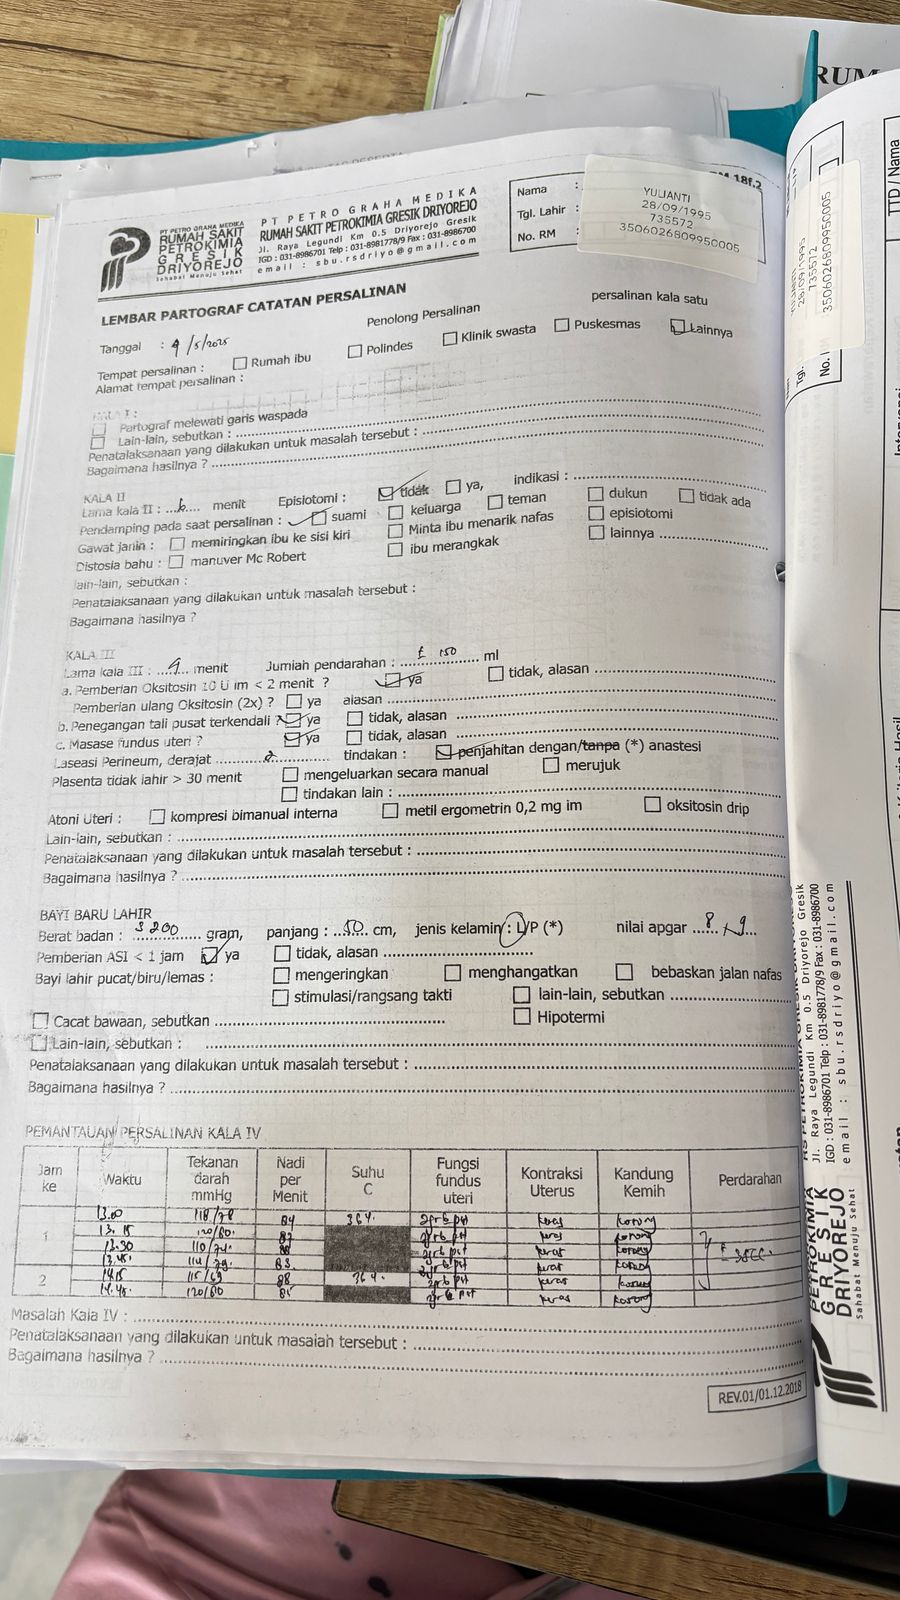 RUM
RM 18f.2
PT PETRO GRAHA MEDIKA
RUMAH SAKIT
PETROKIMIA
GRESIK
DRIYOREJO
Sahabat Menuju Sehat
PT PETRO GRAHA MEDIKA
RUMAH SAKIT PETROKIMIA GRESIK DRIYOREJO
Jl. Raya Legundi Km 0.5 Driyorejo Gresik
IGD : 031-8986701 Telp : 031-8981778/9 Fax : 031-8986700
email : sbu.rsdriyo@gmail.com
Nama :
Tgl. Lahir :
No. RM
YULIANTI
28/09/1995
735572
3506026809950005
LEMBAR PARTOGRAF CATATAN PERSALINAN
Penolong Persalinan persalinan kala satu
Tanggal : 9/5/2025
Tempat persalinan : Rumah ibu Polindes Klinik swasta Puskesmas Lainnya
Alamat tempat persalinan :
KALA I :
Partograf melewati garis waspada
Lain-lain, sebutkan :
Penatalaksanaan yang dilakukan untuk masalah tersebut :
Bagaimana hasilnya ?
KALA II
Lama kala II : 6 menit Episiotomi : tidak ya, indikasi :
Pendamping pada saat persalinan : suami keluarga teman dukun tidak ada
Gawat janin : memiringkan ibu ke sisi kiri Minta ibu menarik nafas episiotomi
Distosia bahu : manuver Mc Robert ibu merangkak lainnya
lain-lain, sebutkan :
Penatalaksanaan yang dilakukan untuk masalah tersebut :
Bagaimana hasilnya ?
KALA III
Lama kala III : 9 menit Jumlah pendarahan : ± 150 ml
a. Pemberian Oksitosin 10 U im < 2 menit ? ya tidak, alasan
Pemberian ulang Oksitosin (2x) ? ya alasan
b. Penegangan tali pusat terkendali ? ya tidak, alasan
c. Masase fundus uteri ? ya tidak, alasan
Laseasi Perineum, derajat 2 tindakan : penjahitan dengan/tanpa (*) anastesi
Plasenta tidak lahir > 30 menit mengeluarkan secara manual merujuk
tindakan lain :
Atoni Uteri : kompresi bimanual interna metil ergometrin 0,2 mg im oksitosin drip
Lain-lain, sebutkan :
Penatalaksanaan yang dilakukan untuk masalah tersebut :
Bagaimana hasilnya ?
BAYI BARU LAHIR
Berat badan : 3200 gram, panjang : 50 cm, jenis kelamin : L/P (*) nilai apgar 8 + 9
Pemberian ASI < 1 jam ya tidak, alasan
Bayi lahir pucat/biru/lemas : mengeringkan menghangatkan bebaskan jalan nafas
stimulasi/rangsang takti lain-lain, sebutkan
Cacat bawaan, sebutkan Hipotermi
Lain-lain, sebutkan :
Penatalaksanaan yang dilakukan untuk masalah tersebut :
Bagaimana hasilnya ?
PEMANTAUAN PERSALINAN KALA IV
Jam ke Waktu Tekanan darah mmHg Nadi per Menit Suhu C Fungsi fundus uteri Kontraksi Uterus Kandung Kemih Perdarahan
1 13.00 118/78 84 364. 2jrb pst keras kosong
13.15 120/80. 2jrb pst keras kosong
13.30 110/74. 88 2jrb pst keras kosong
13.45. 83. keras kosong
2 14.15 115/69 88 364. 2jrb pst keras kosong
14.45. 120/80 2jrb pst keras kosong
Masalah Kala IV :
Penatalaksanaan yang dilakukan untuk masalah tersebut :
Bagaimana hasilnya ?
REV.01/01.12.2018
YULIANTI
28/09/1995
735572
3506026809950005
Tgl.
No.
TTD / Nama
RS PETROKIMIA GRESIK DRIYOREJO
Jl. Raya Legundi Km 0.5 Driyorejo Gresik
IGD : 031-8986701 Telp : 031-8981778/9 Fax : 031-8986700
email : sbu.rsdriyo@gmail.com
PETROKIMIA
GRESIK
DRIYOREJO
Sahabat Menuju Sehat